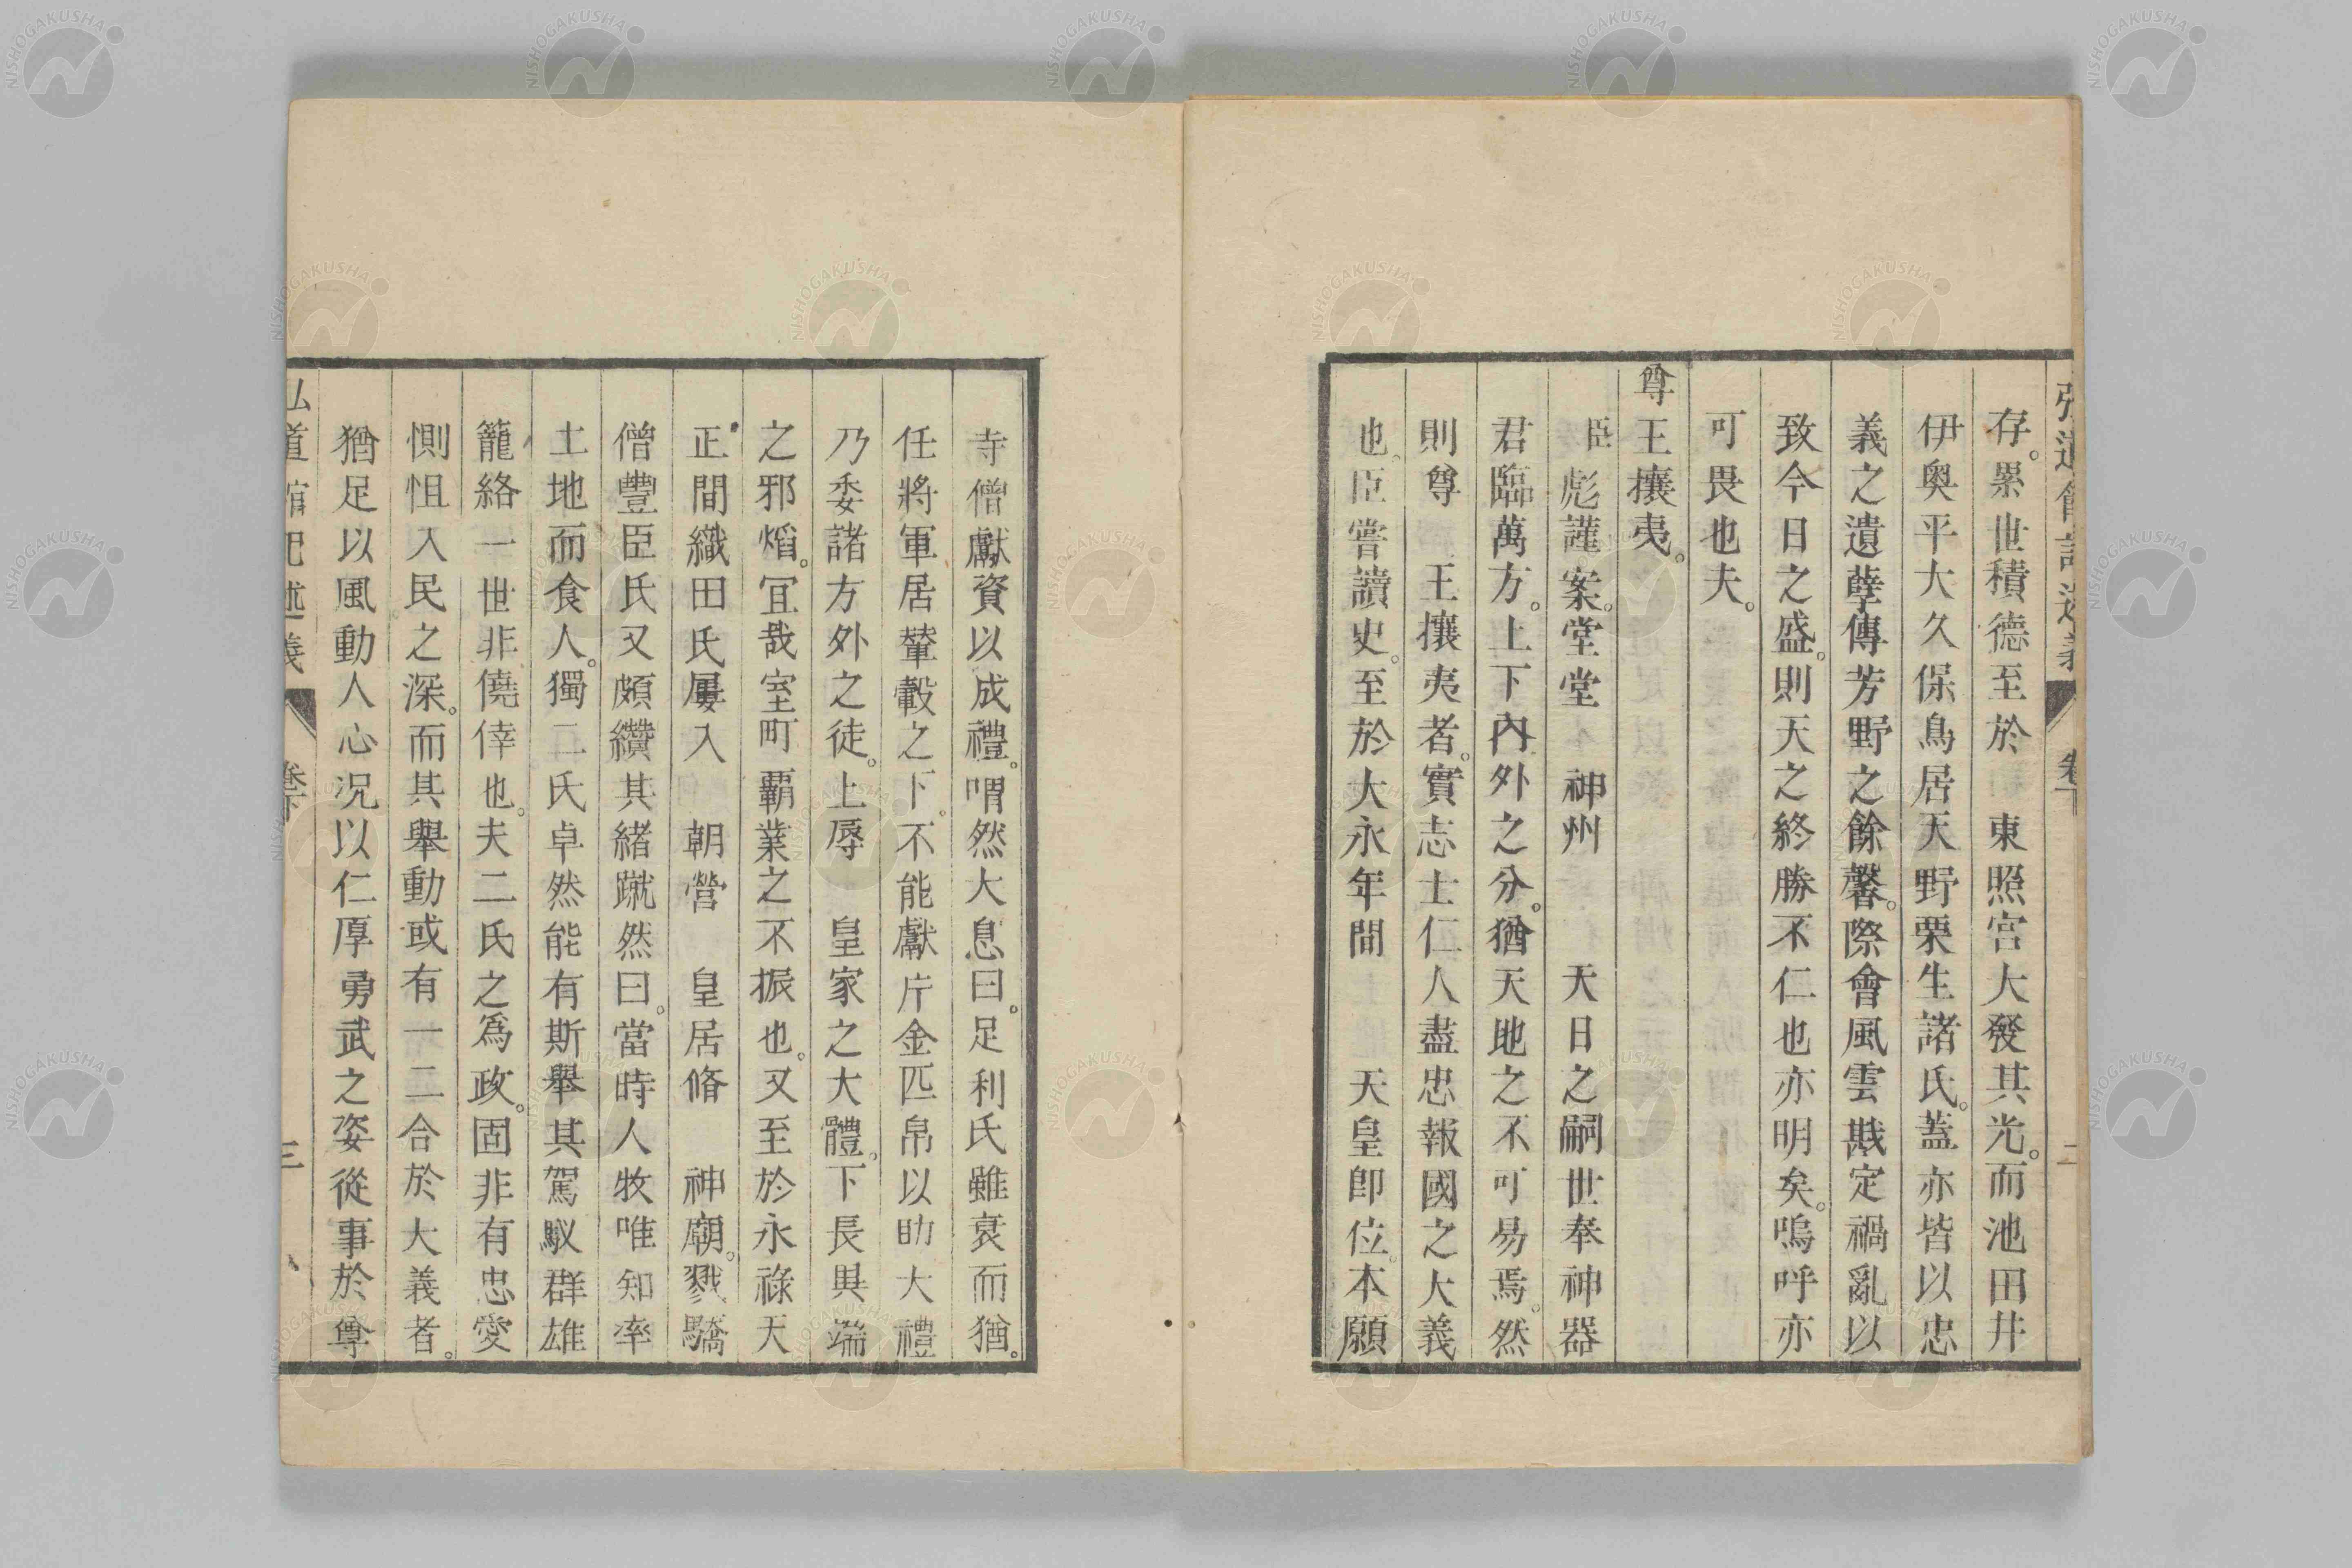 弘道館記述義 卷下 二
存。累世積德至於 東照宮大發其光。而池田井
伊奧平大久保鳥居天野栗生諸氏。蓋亦皆以忠
義之遺孽傳芳野之餘馨。際會風雲戡定禍亂以
致今日之盛。則天之終勝不仁也亦明矣。嗚呼亦
可畏也夫。
尊王攘夷。
臣彪謹案。堂堂 神州 天日之嗣世奉神器
君臨萬方。上下內外之分。猶天地之不可易焉。然
則尊 王攘夷者。實志士仁人盡忠報國之大義
也。臣嘗讀史。至於大永年間 天皇卽位。本願
寺僧獻資以成禮。喟然大息曰。足利氏雖衰而猶。
任將軍居輦轂之下。不能獻片金匹帛以助大禮
乃委諸方外之徒。上辱 皇家之大體。下長異端
之邪熖。宜哉室町霸業之不振也。又至於永祿天
正間織田氏屢入 朝營 皇居脩 神廟。戮驕
僧豐臣氏又頗纘其緖蹴然曰。當時人牧唯知率
土地而食人。獨二氏卓然能有斯舉其駕馭群雄
籠絡一世非僥倖也。夫二氏之爲政。固非有忠愛
惻怛入民之深。而其舉動或有一二合於大義者。
猶足以風動人心況以仁厚勇武之姿從事於尊
弘道館記述義 卷下 三
NISHOGAKUSHA